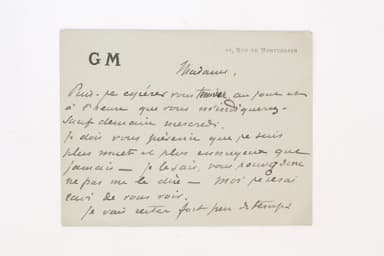 GM
Rue de Montchanin
Madame,
Puis-je espérer vous trouver au jour et
à l'heure que vous m'indiquerez -
sauf demain mercredi.
Je dois vous prévenir que je suis
plus muet et plus ennuyeux que
jamais — je le sais, vous pouvez donc
ne pas me le dire — Moi je serai
ravi de vous voir.
Je vais rester fort peu de temps